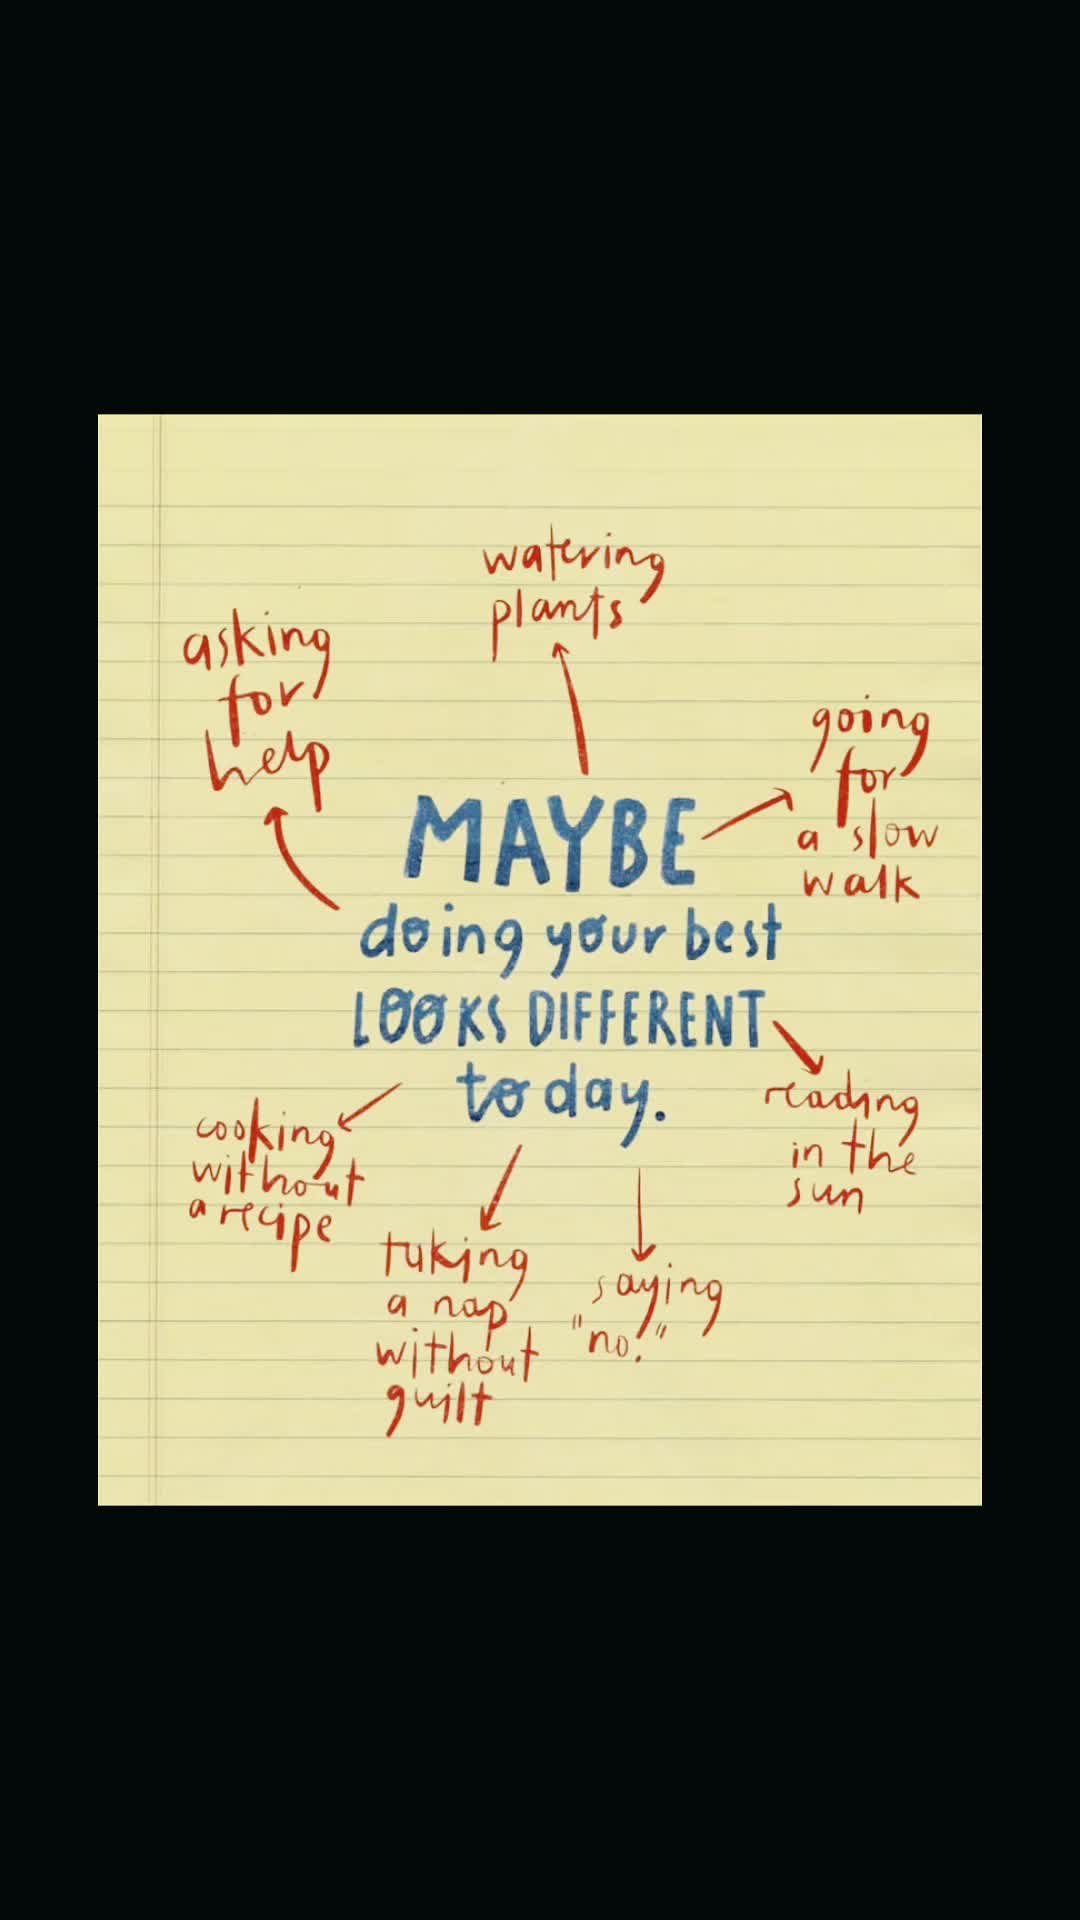 watering
plants
asking
for
help
going
for
a slow
walk
MAYBE
doing your best
LOOKS DIFFERENT
today.
reading
in the
sun
cooking
without
a recipe
taking
a nap
without
guilt
saying
"no."